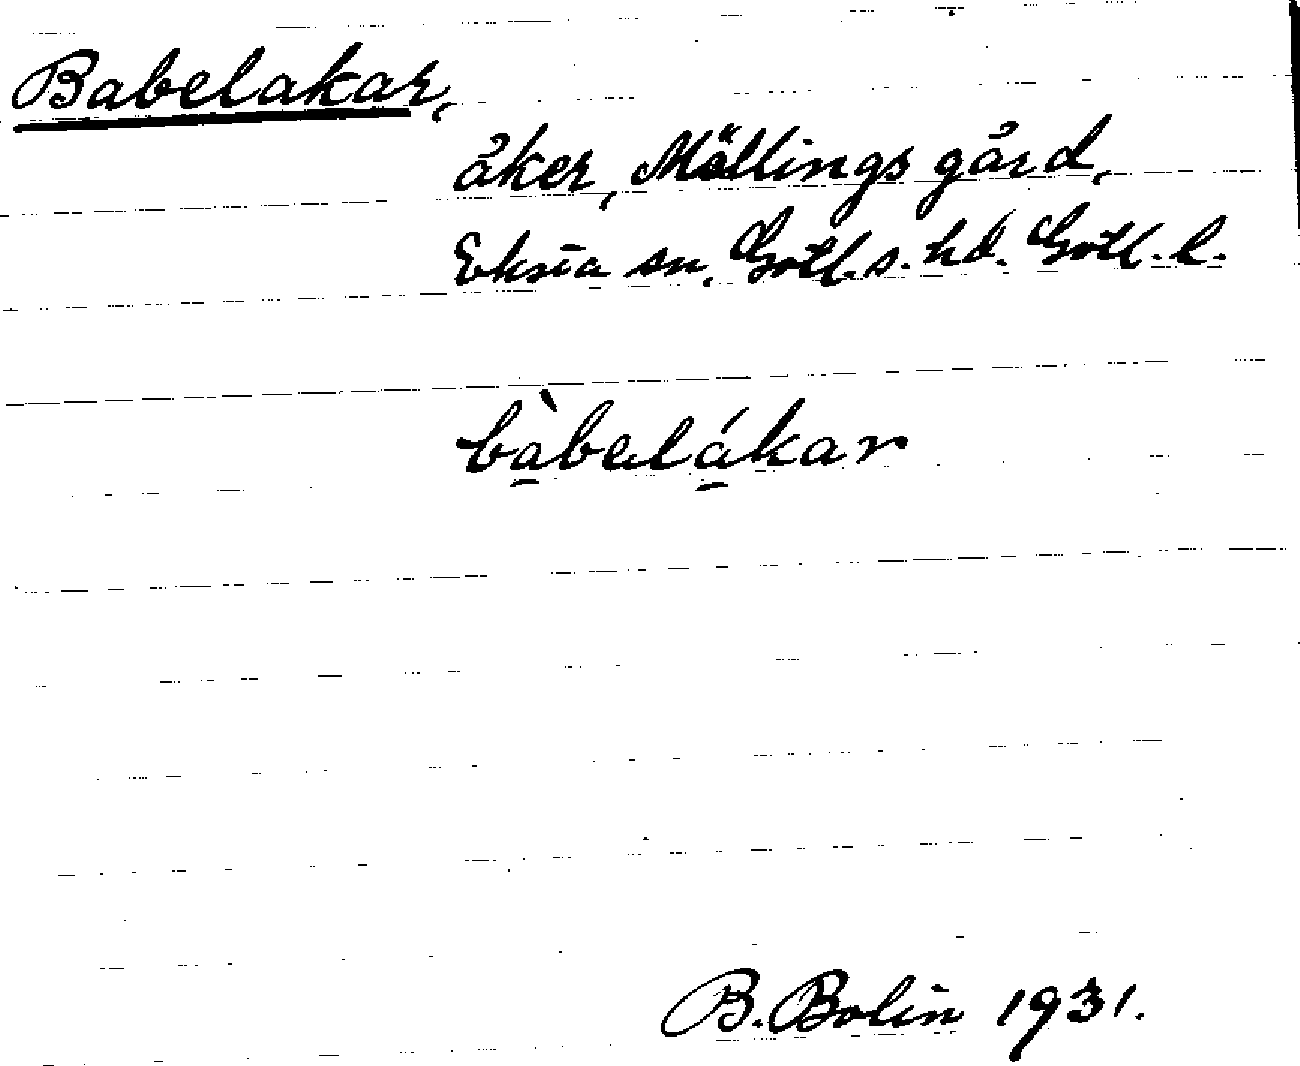 Babelakar,
åker, Möllings gård,
Eksta sn, Gotl. s. hd. Gotl. l.
bàbelákar
B. Bolin 1931.